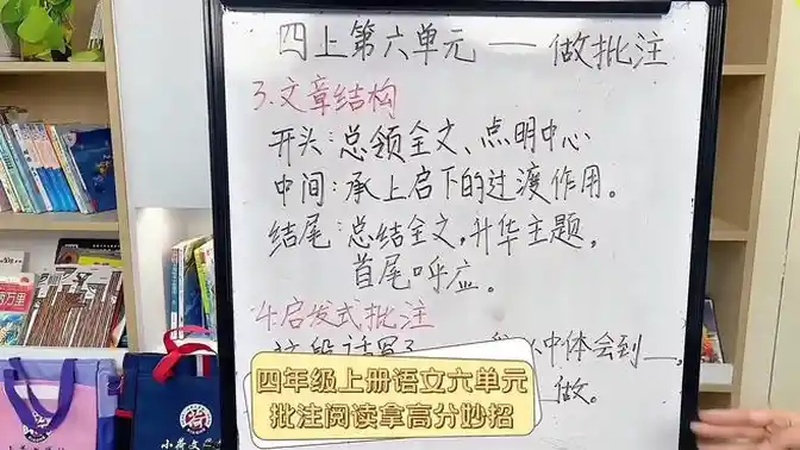 四上第六单元——做批注
3.文章结构
开头:总领全文、点明中心
中间:承上启下的过渡作用。
结尾:总结全文,升华主题,
首尾呼应。
4.启发式批注
这段话写了
中体会到__,
做。
四年级上册语文六单元
批注阅读拿高分妙招
万里